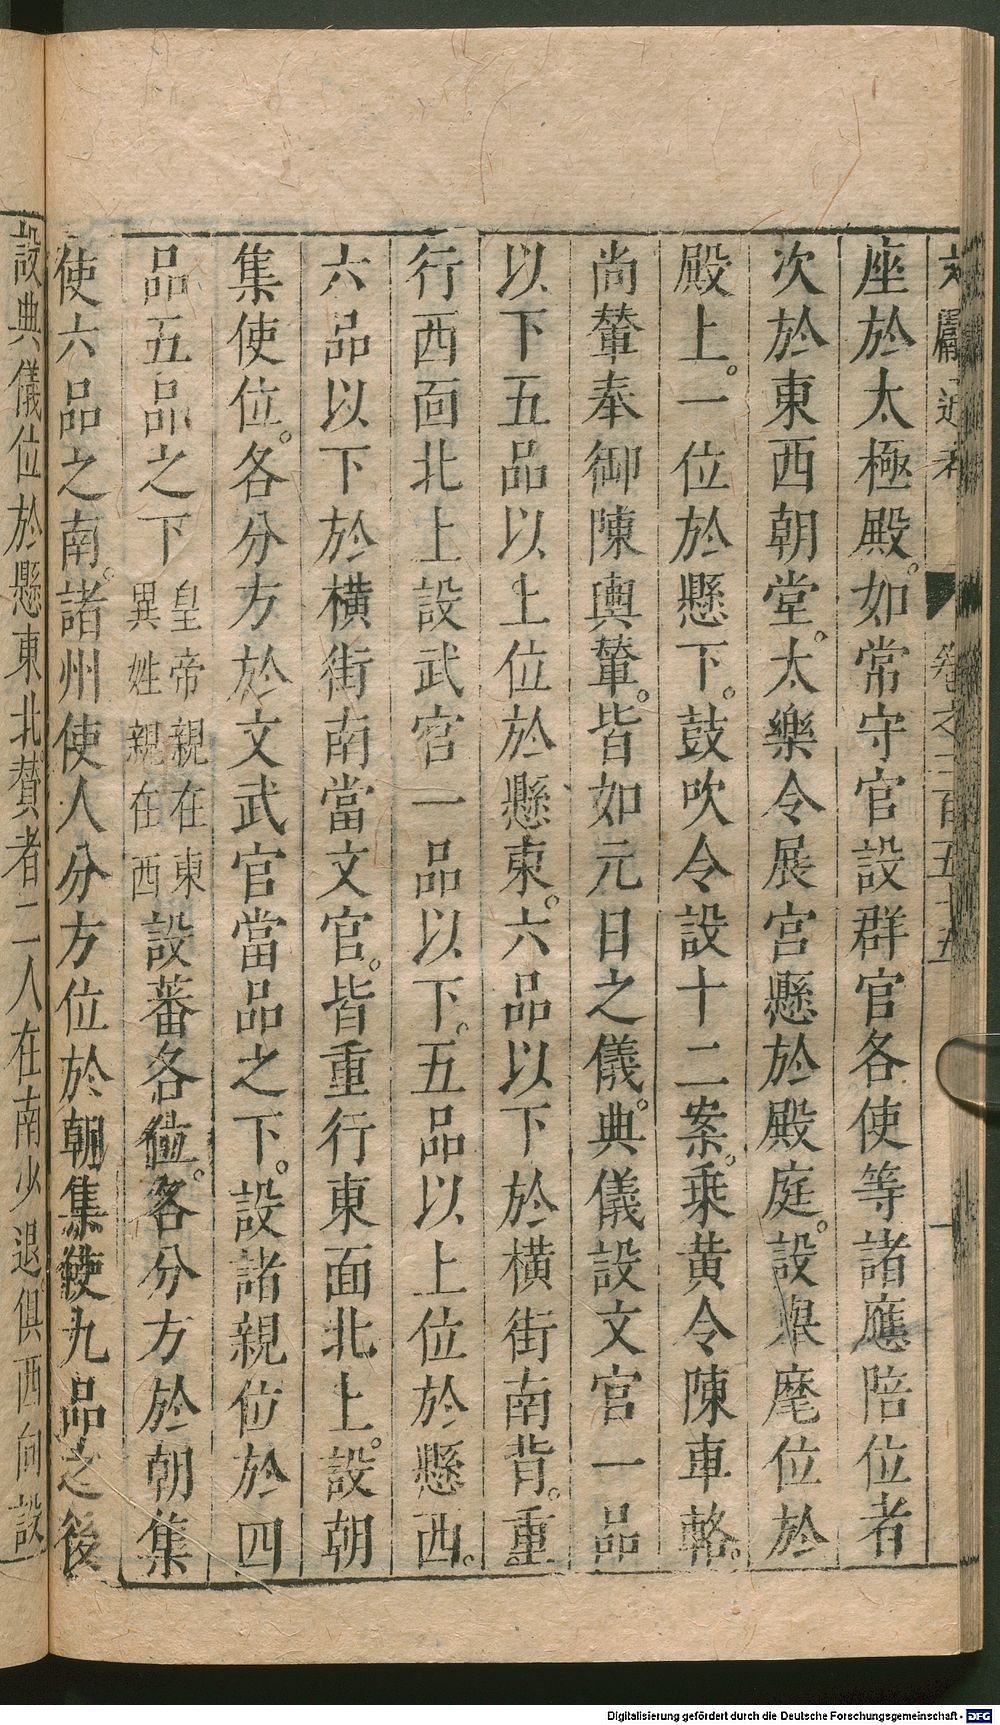 卷之二百五十五
座於太極殿。如常守官設群官各使等諸應陪位者
次於東西朝堂。太樂令展宮懸於殿庭。設舉麾位於
殿上。一位於懸下。鼓吹令設十二案。乗黃令陳車輅。
尚輦奉御陳輿輦。皆如元日之儀。典儀設文官一品
以下五品以上位於懸東。六品以下於橫街南背。重
行西面北上設武官一品以下。五品以上位於懸西。
六品以下於橫街南當文官。皆重行東面北上。設朝
集使位。各分方於文武官當品之下。設諸親位於四
品五品之下皇帝親親在東異姓親在西設蕃各位。各分方於朝集
使六品之南。諸州使人分方位於朝集使九品之後
設典儀位於懸東北贊者二人在南少退俱西向設
Digitalisierung gefördert durch die Deutsche Forschungsgemeinschaft - DFG